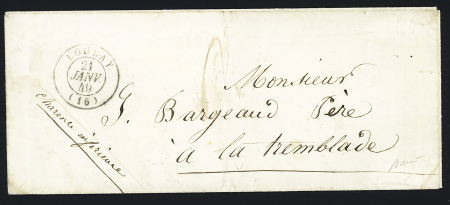 LOULAY
21
JANV
49
(16)
Monsieur
G. Bargeaud Père
à la tremblade
Charente inférieure